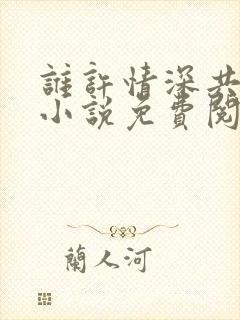 誰許情深共
小說免費閱
蘭人河